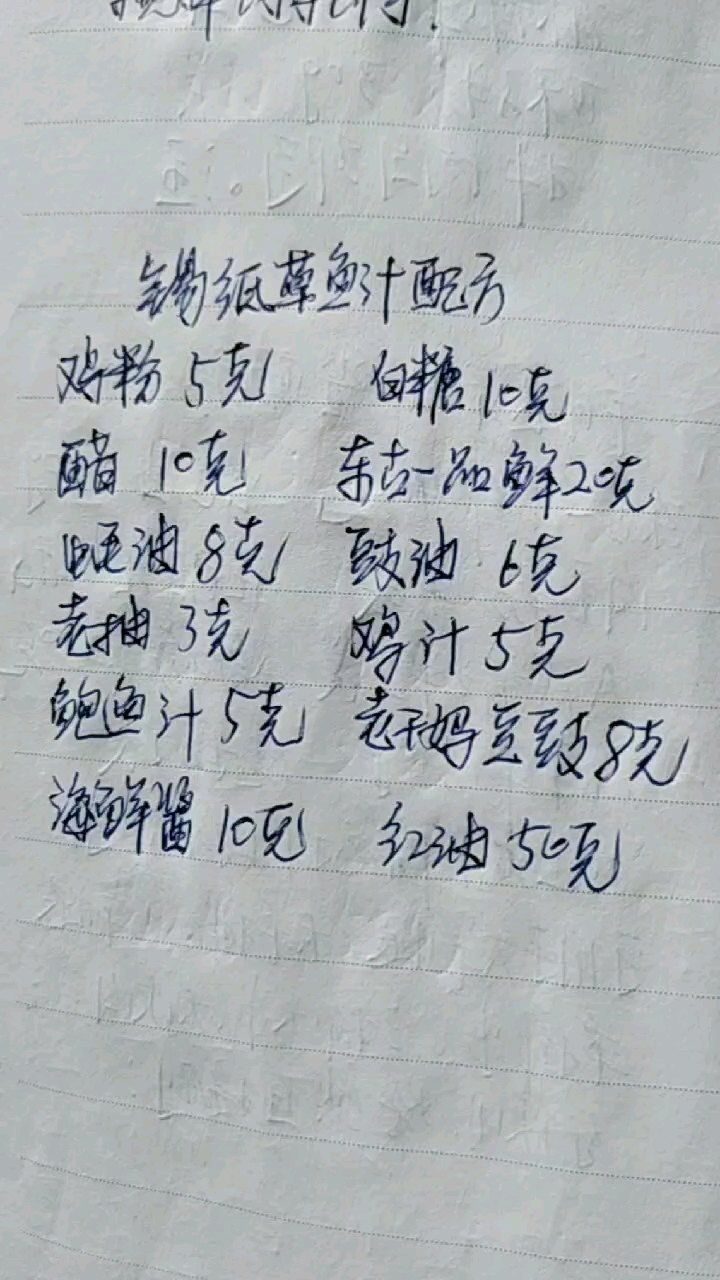 锡纸草鱼汁配方
鸡粉 5克 白糖 10克
醋 10克 东古一品鲜 20克
蚝油 8克 豉油 6克
老抽 3克 鸡汁 5克
鲍鱼汁 5克 老干妈豆豉 8克
海鲜酱 10克 红油 50克